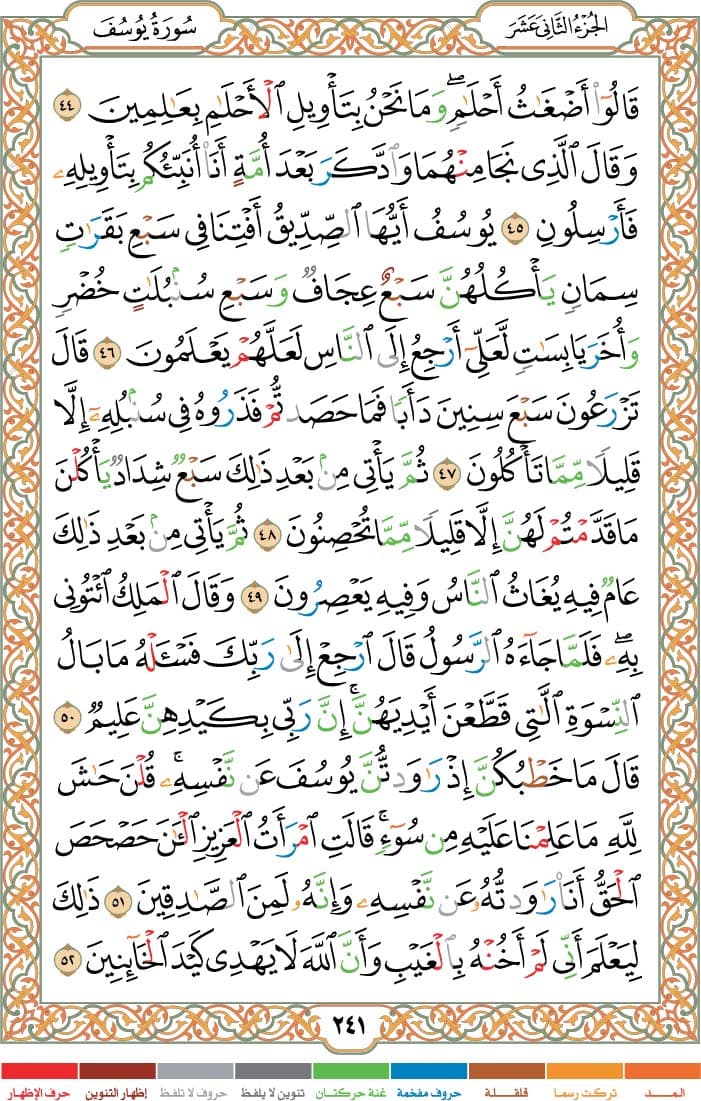 الجُزْءُ الثَّانِي عَشَرَ
سُورَةُ يُوسُفَ
قَالُوٓاْ أَضْغَٰثُ أَحْلَٰمٖۖ وَمَا نَحْنُ بِتَأْوِيلِ ٱلْأَحْلَٰمِ بِعَٰلِمِينَ ٤٤
وَقَالَ ٱلَّذِى نَجَا مِنْهُمَا وَٱدَّكَرَ بَعْدَ أُمَّةٍ أَنَا۠ أُنَبِّئُكُم بِتَأْوِيلِهِۦ
فَأَرْسِلُونِ ٤٥ يُوسُفُ أَيُّهَا ٱلصِّدِّيقُ أَفْتِنَا فِى سَبْعِ بَقَرَٰتٍ
سِمَانٍ يَأْكُلُهُنَّ سَبْعٌ عِجَافٌ وَسَبْعِ سُنۢبُلَٰتٍ خُضْرٍ
وَأُخَرَ يَابِسَٰتٍ لَّعَلِّىٓ أَرْجِعُ إِلَى ٱلنَّاسِ لَعَلَّهُمْ يَعْلَمُونَ ٤٦ قَالَ
تَزْرَعُونَ سَبْعَ سِنِينَ دَأَبًا فَمَا حَصَدتُّمْ فَذَرُوهُ فِى سُنۢبُلِهِۦٓ إِلَّا
قَلِيلًا مِّمَّا تَأْكُلُونَ ٤٧ ثُمَّ يَأْتِى مِنۢ بَعْدِ ذَٰلِكَ سَبْعٌ شِدَادٌ يَأْكُلْنَ
مَا قَدَّمْتُمْ لَهُنَّ إِلَّا قَلِيلًا مِّمَّا تُحْصِنُونَ ٤٨ ثُمَّ يَأْتِى مِنۢ بَعْدِ ذَٰلِكَ
عَامٌ فِيهِ يُغَاثُ ٱلنَّاسُ وَفِيهِ يَعْصِرُونَ ٤٩ وَقَالَ ٱلْمَلِكُ ٱئْتُونِى
بِهِۦۖ فَلَمَّا جَآءَهُ ٱلرَّسُولُ قَالَ ٱرْجِعْ إِلَىٰ رَبِّكَ فَسْـَٔلْهُ مَا بَالُ
ٱلنِّسْوَةِ ٱلَّٰتِى قَطَّعْنَ أَيْدِيَهُنَّۚ إِنَّ رَبِّى بِكَيْدِهِنَّ عَلِيمٌ ٥٠
قَالَ مَا خَطْبُكُنَّ إِذْ رَٰوَدتُّنَّ يُوسُفَ عَن نَّفْسِهِۦۚ قُلْنَ حَٰشَ
لِلَّهِ مَا عَلِمْنَا عَلَيْهِ مِن سُوٓءٍۚ قَالَتِ ٱمْرَأَتُ ٱلْعَزِيزِ ٱلْـَٰٔنَ حَصْحَصَ
ٱلْحَقُّ أَنَا۠ رَٰوَدتُّهُۥ عَن نَّفْسِهِۦ وَإِنَّهُۥ لَمِنَ ٱلصَّٰدِقِينَ ٥١ ذَٰلِكَ
لِيَعْلَمَ أَنِّى لَمْ أَخُنْهُ بِٱلْغَيْبِ وَأَنَّ ٱللَّهَ لَا يَهْدِى كَيْدَ ٱلْخَآئِنِينَ ٥٢
٢٤١
المــد تركت رسما قلقــلة حروف مفخمة غنة حركتان تنوين لا يلفظ حروف لا تلفظ إظهار التنوين حرف الإظهار